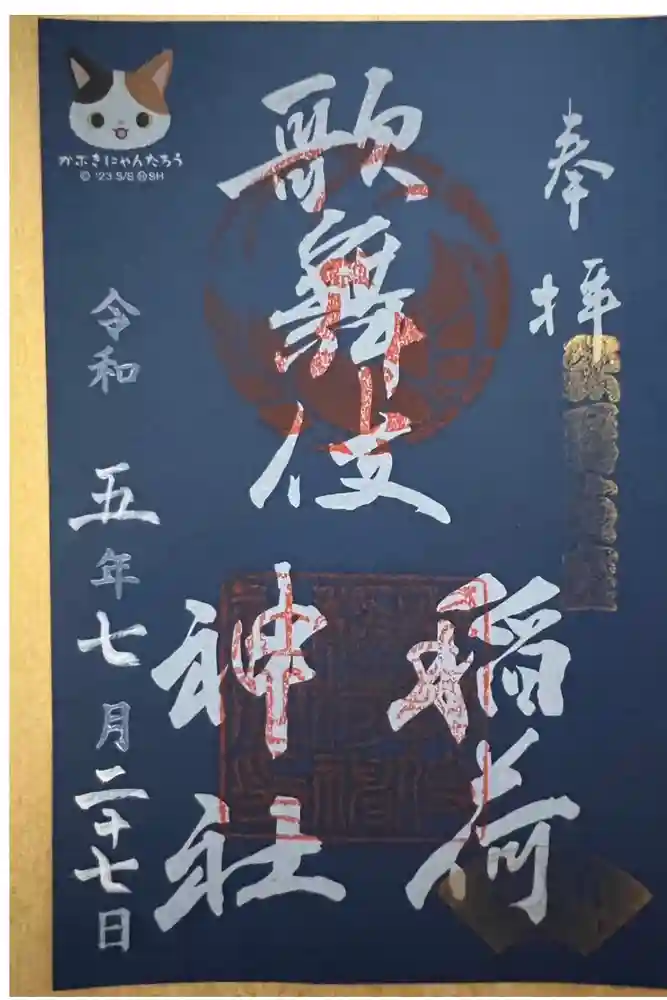 奉拝
歌舞伎
稲荷
神社
令和五年七月二十七日
かぶきにゃんたろう
© '23 S/S Ⓗ SH